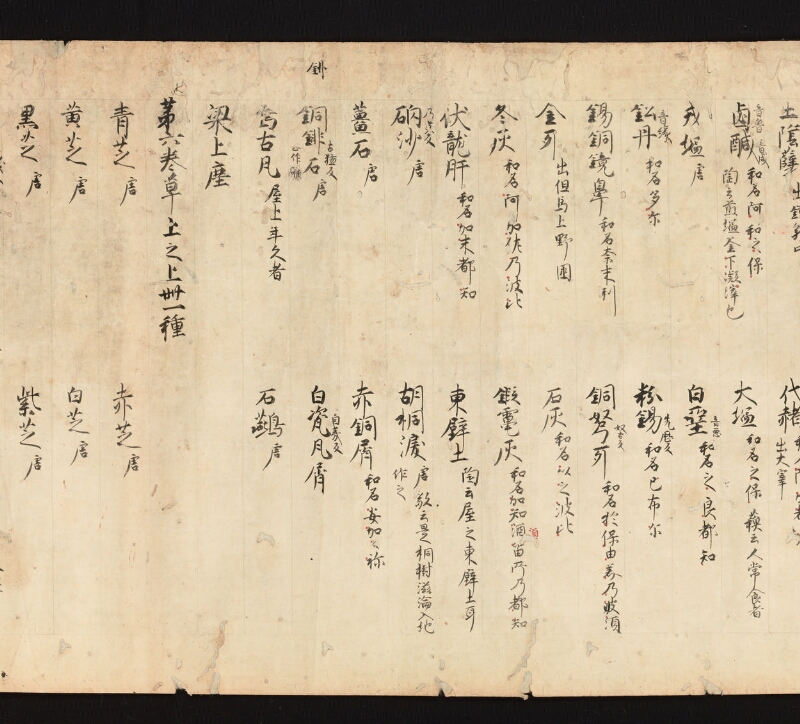 土陰孽
代赭 出大宰
鹵鹹 和名阿和之保
陶云煎塩釜下凝滓也
大塩 和名之保 蘓云人常食者
戎塩 唐
白堊 和名之良都知
鈆丹 和名多尓
粉錫 和名己布尓
錫銅鏡鼻 和名奈末利
銅弩牙 和名於保由美乃波須
金牙 出但馬上野国
石灰 和名以之波比
冬灰 和名阿加佐乃波比
鍛竃灰 和名加知須
伏龍肝 和名加末都知
東壁土 陶云屋之東壁土耳
硇沙 唐
胡桐淚 唐 敬云是桐樹滋淪入地作之
薑石 唐
赤銅屑 和名安加加祢
銅鉾石 唐
白瓷瓦屑
烏古瓦 屋上年久者
石鷰 唐
梁上塵
第六卷草上之上卌一種
青芝 唐
赤芝 唐
黄芝 唐
白芝 唐
黒芝 唐
紫芝 唐